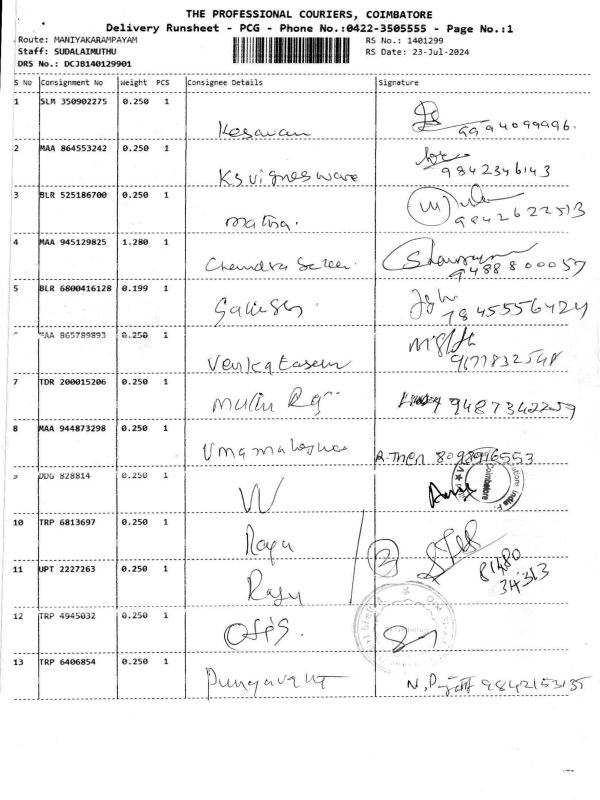 THE PROFESSIONAL COURIERS, COIMBATORE
Delivery Runsheet - PCG - Phone No.:0422-3505555 - Page No.:1
Route: MANIYAKARAMPAYAM RS No.: 1401299
Staff: SUDALAIMUTHU RS Date: 23-Jul-2024
DRS No.: DCJB140129901
S No Consignment No Weight PCS Consignee Details Signature
1 SLM 350902275 0.250 1
Kesavan 9994099996.
2 MAA 864553242 0.250 1
Ksvigneswara 9842346143
3 BLR 525186700 0.250 1
matha. 9842622513
4 MAA 945129825 1.280 1
Chandra Seker. 9488800057
5 BLR 6800416128 0.199 1
Ganesh. 7845556424
MAA 865789893 0.250 1
Venkatasem 9677832548
7 TDR 200015206 0.250 1
9487342259
8 MAA 944873298 0.250 1
Umamaheswa R.Then 8098996553
9 DDG 828814 0.250 1
Coimbatore
10 TRP 6813697 0.250 1
Raju
11 UPT 2227263 0.250 1
Raju 2 81480
34313
12 TRP 4945032 0.250 1
13 TRP 6406854 0.250 1
9842153135